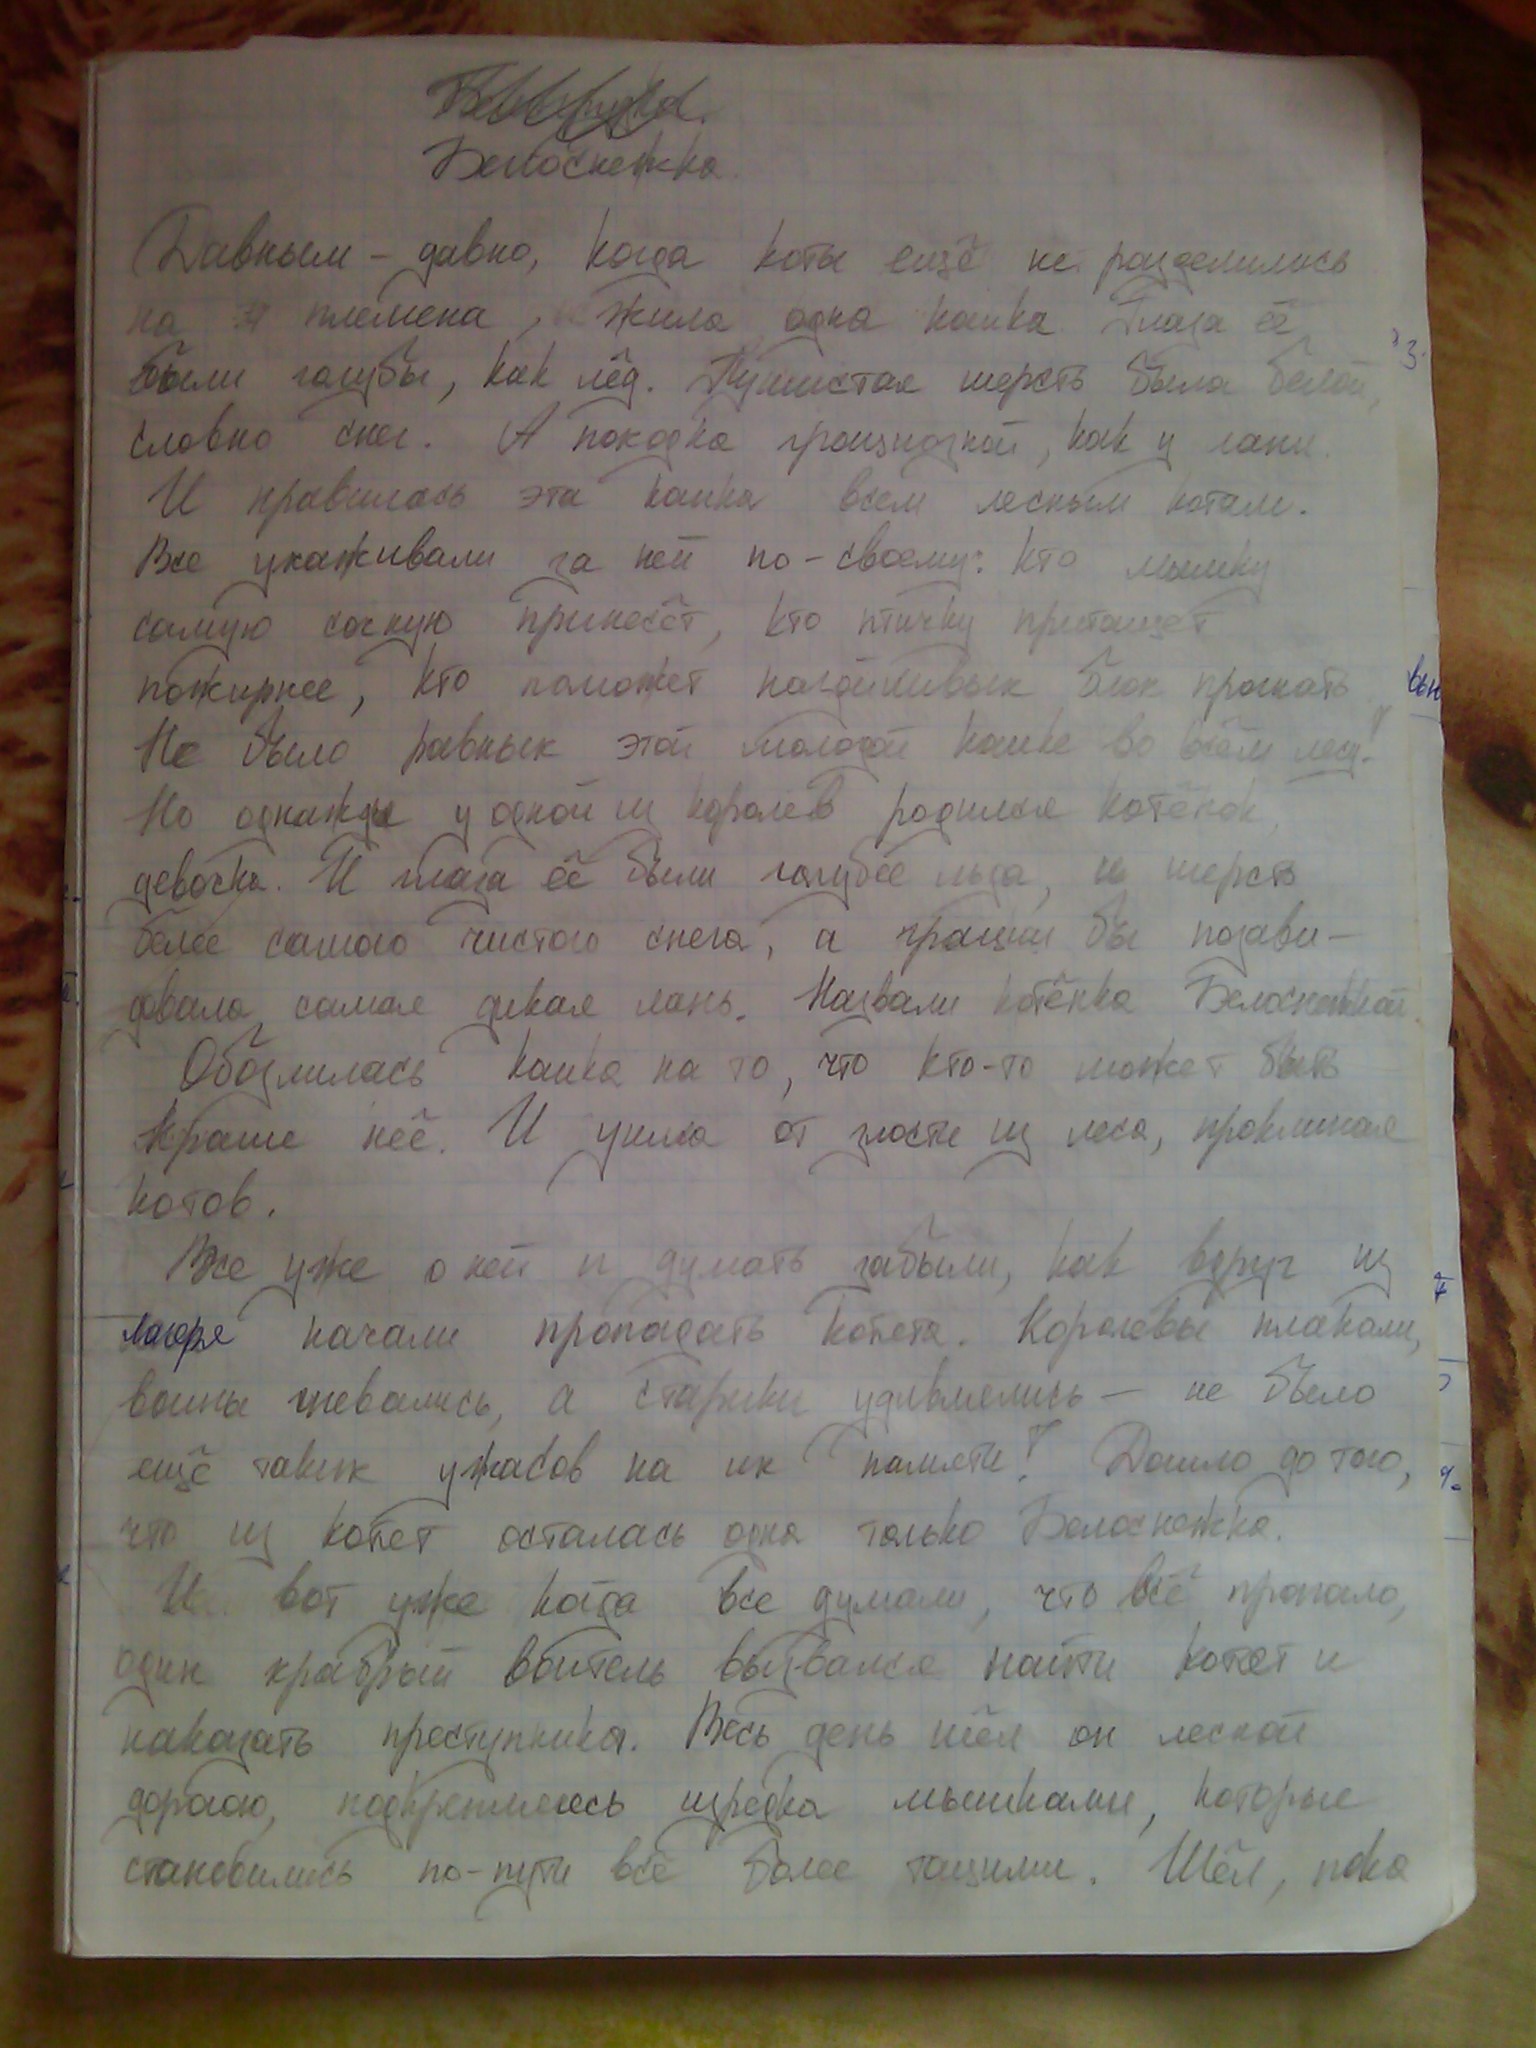 Белоснежка.
Давным-давно, когда коты ещё не разделились
на племена, жила одна кошка. Глаза её
были голубы, как лёд. Пушистая шерсть была белой,
словно снег. А походка грациозной, как у лани.
И нравилась эта кошка всем лесным котам.
Все ухаживали за ней по-своему: кто мышку
самую сочную принесёт, кто птичку притащет
пожирнее, кто поможет назойливых блох прогнать.
Не было равных этой молодой кошке во всём лесу!
Но однажды у одной из королев родился котёнок,
девочка. И глаза её были голубее льда, и шерсть
белее самого чистого снега, а грации бы позави-
довала самая дикая лань. Назвали котёнка Белоснежкой.
Обозлилась кошка на то, что кто-то может быть
краше неё. И ушла от злости из леса, проклиная
котов.
Все уже о ней и думать забыли, как вдруг из
лагеря начали пропадать котята. Королевы плакали,
воины гневались, а старики удивлялись — не было
ещё таких ужасов на их памяти! Дошло до того,
что из котят осталась одна только Белоснежка.
И вот уже когда все думали, что всё пропало,
один храбрый воитель вызвался найти котят и
наказать преступника. Весь день шёл он лесной
дорогою, подкрепляясь изредка мышками, которые
становились по-пути всё более тощими. Шёл, пока